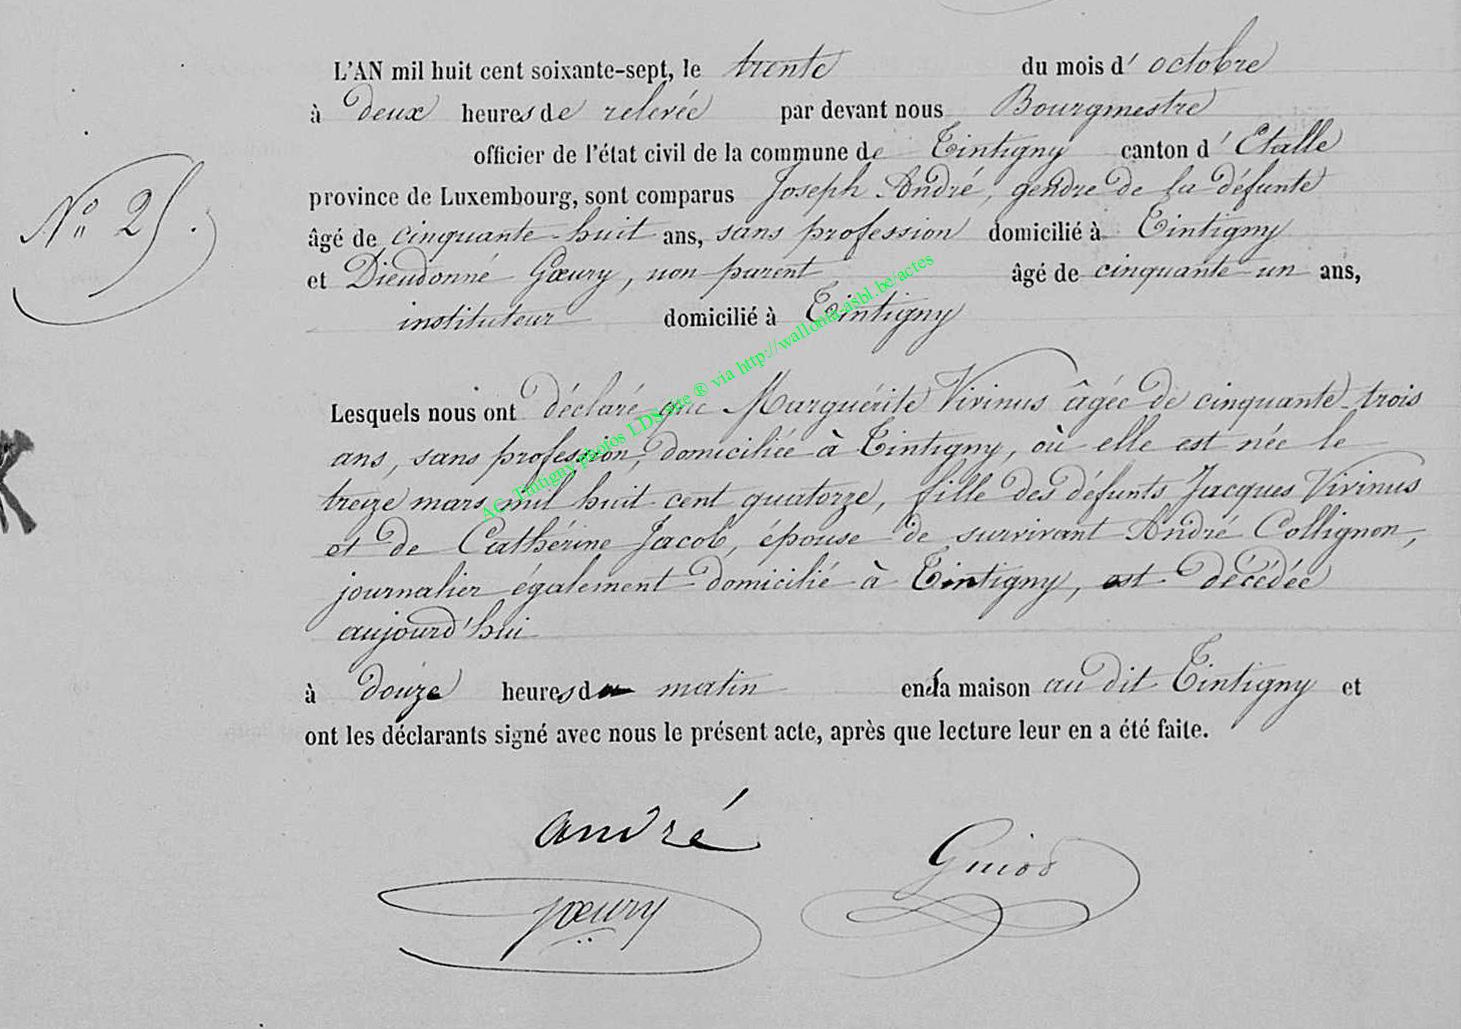 L'AN mil huit cent soixante-sept, le trente du mois d'octobre
à deux heures de relevée par devant nous Bourgmestre
officier de l'état civil de la commune de Tintigny canton d'Etalle
N° 25.
province de Luxembourg, sont comparus Joseph André, gendre de la défunte
âgé de cinquante-huit ans, sans profession domicilié à Tintigny
et Dieudonné Gœury, non parent âgé de cinquante-un ans,
instituteur domicilié à Tintigny
Lesquels nous ont déclaré que Marguérite Virinus âgée de cinquante-trois
ans, sans profession, domiciliée à Tintigny, où elle est née le
treize mars mil huit cent quatorze, fille des défunts Jacques Virinus
et de Cathérine Jacob, épouse de survivant André Collignon,
journalier également domicilié à Tintigny, est décédée
aujourd'hui
à douze heures du matin en la maison au dit Tintigny et
ont les déclarants signé avec nous le présent acte, après que lecture leur en a été faite.
AC. Tintigny photos LDS site ® via http://wallonia-asbl.be/actes
andré
Guiod
gœury